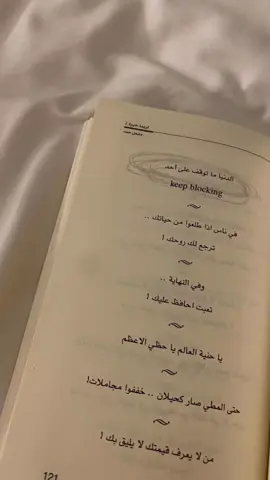 الدنيا ما توقف على أحد
keep blocking
في ناس اذا طلعوا من حياتك ..
ترجع لك روحك !
وفي النهاية ..
تعبت احافظ عليك !
يا حنية العالم يا حظي الاعظم
حتى المطي صار كحيلان .. خففوا مجاملات!
من لا يعرف قيمتك لا يليق بك !
121